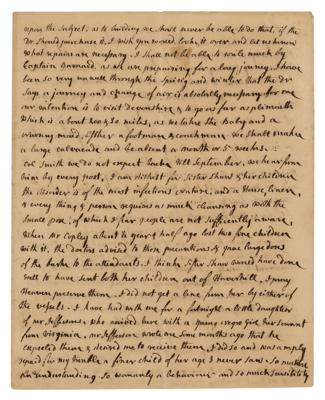 upon the subject, as to building we shall never be able to do that, if the
Dr. should purchase it, I wish you would look it over and let us know
what repairs are necessary. I shall not be able to write much by
Captain Barnard, as we are preparing for a long journey. I have
been so very unwell through the Spring and winter that the Dr
says a journey and change of air is absolutely necessary for me
our intention is to visit devonshire & to go as far as plimouth
which is about 200 & 30 miles, as we take the Baby and a
nursery maid, Esther a footman & coachman we shall make
a large cavalcade and be absent a month or 5 weeks.
Col Smith we do not expect back till September. we hear from
him by every post, I am distrest for Sister Shaw & her children
the disorder is of the most infectious Nature, and a House, linen,
& every thing & person requires as much cleansing as with the
Small pox, of which I fear people are not sufficiently aware.
When Mr Copley about a year & half ago lost two fine children
with it, the doctors advised to these precautions & gave large doses
of the bark to the attendants. I think Sister Shaw would have done
well to have sent both her children out of Haverhill. I pray
Heaven preserve them. I did not get a line from her by either of
the vessels. I have had with me for a fortnight a little daughter
of mr Jeffersons, who arrived here with a young negro Girl her Servant
from Virginia. mr Jefferson wrote me some months ago that he
expected them & desired me to receive them. I did so and was amply
repaid for my trouble a finer child of her age I never saw. So mature
an understanding. So womanly a behaviour and so much sensibility